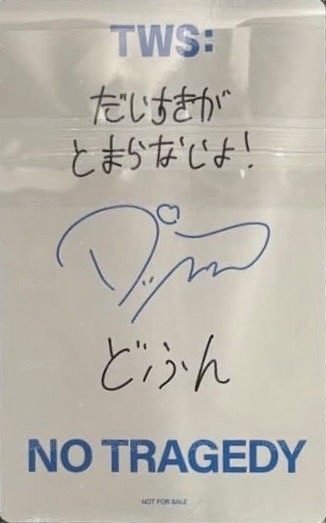 TWS:
だいすきが
とまらないよ!
どふん
NO TRAGEDY
NOT FOR SALE